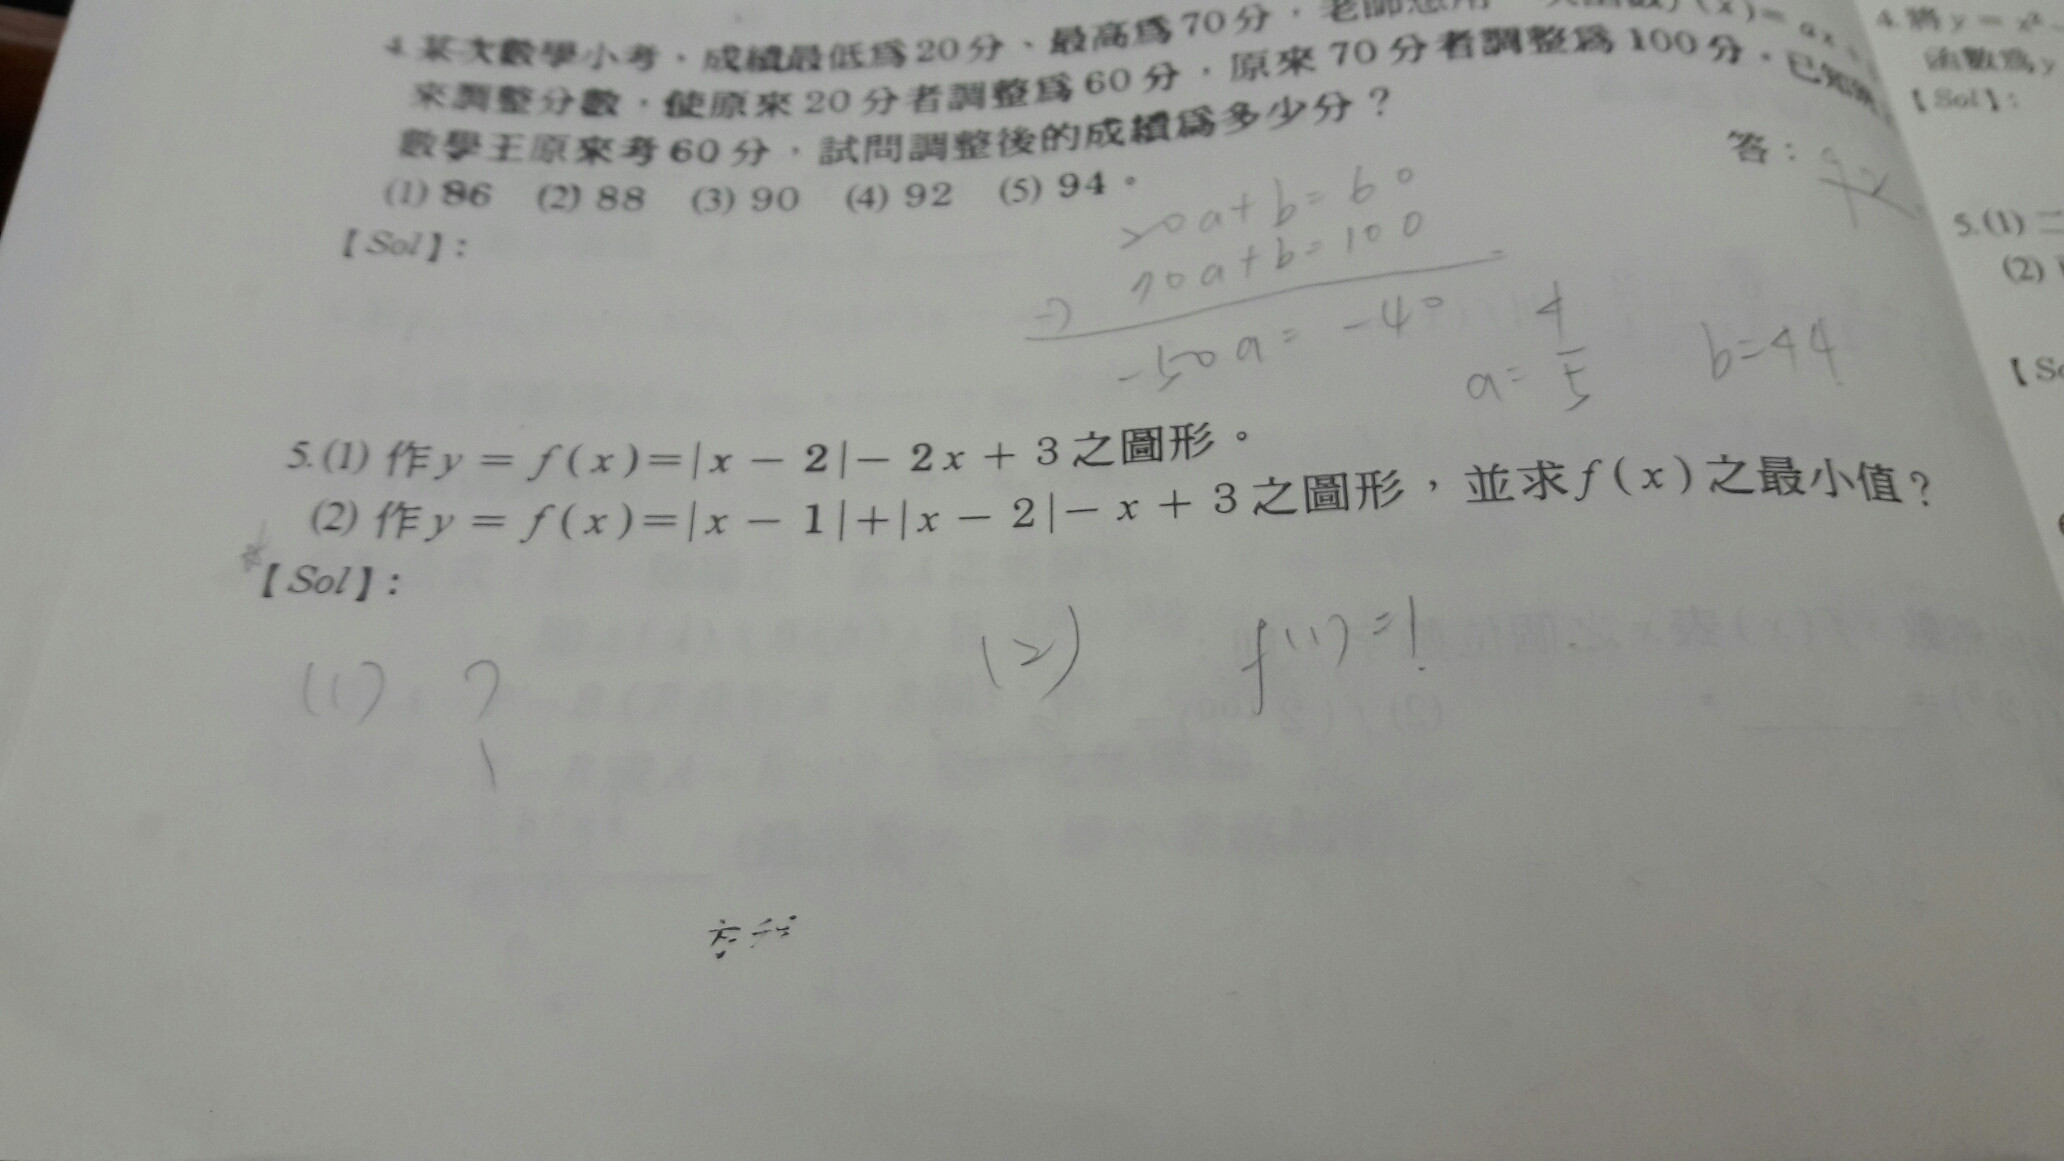 4.某次數學小考，成績最低爲20分、最高爲70分，老師想用一次函數f(x)=ax+
來調整分數，使原來20分者調整爲60分，原來70分者調整爲100分，已知
數學王原來考60分，試問調整後的成績爲多少分？
答：92
(1) 86 (2) 88 (3) 90 (4) 92 (5) 94。
【Sol】：
20a+b=60
70a+b=100
-)
-50a=-40
a=4/5
b=44
5.(1) 作y = f(x)=|x − 2|− 2x + 3之圖形。
(2) 作y = f(x)=|x − 1|+|x − 2|− x + 3之圖形，並求f(x)之最小值？
【Sol】：
(1) ?
(2) f(1)=!
4.將y = x²
函數爲y
【Sol】：
5.(1) 二
(2)
【So